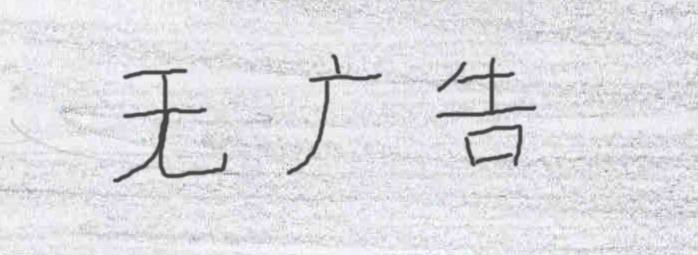 无广告